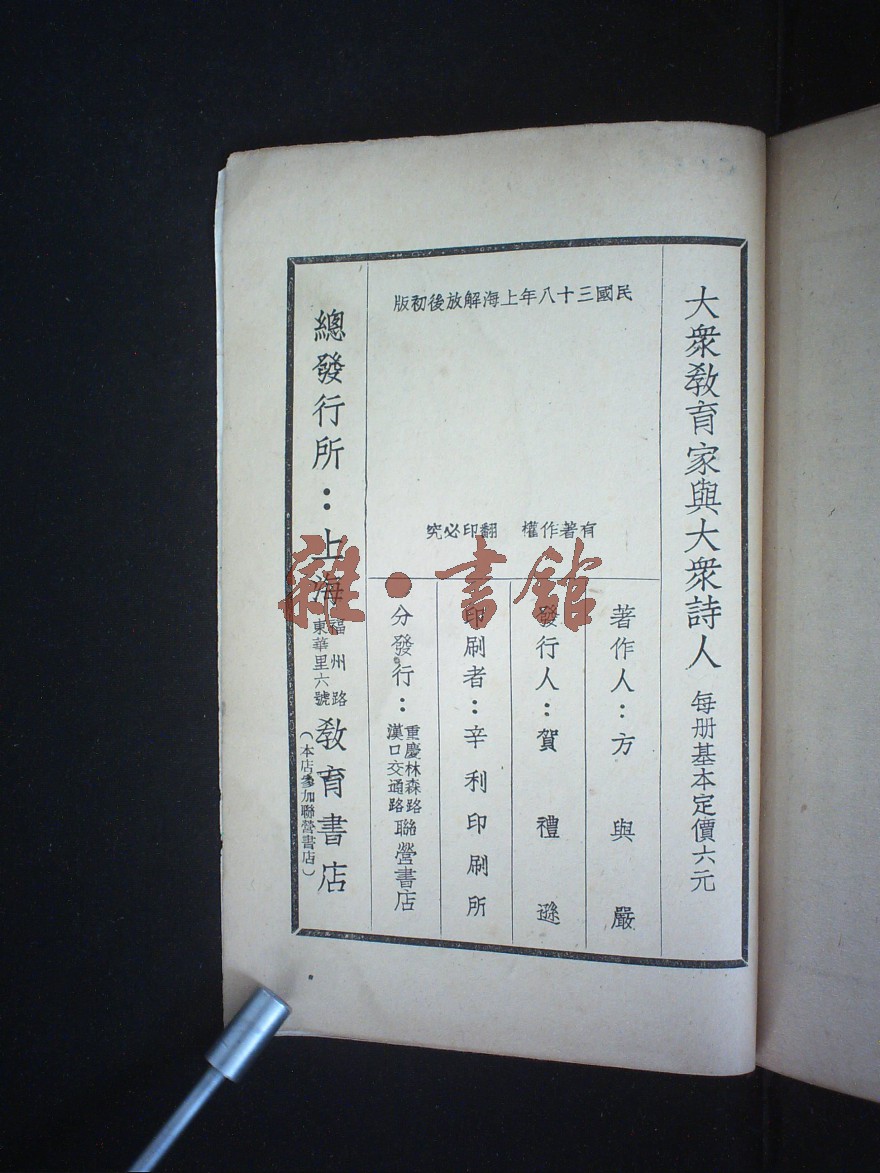 大衆敎育家與大衆詩人 每册基本定價六元
民國三十八年上海解放後初版
有著作權 翻印必究
著作人：方與嚴
發行人：賀禮遜
印刷者：辛利印刷所
分發行：重慶林森路漢口交通路聯營書店
總發行所：上海福州路東華里六號敎育書店
（本店參加聯營書店）
雜·書館